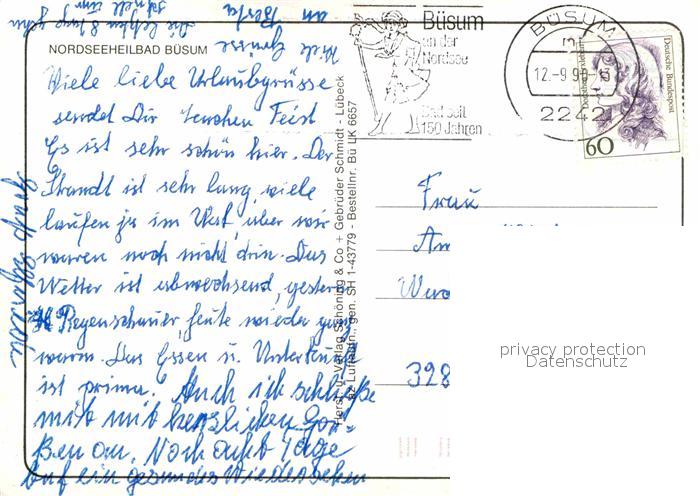 NORDSEEHEILBAD BÜSUM
Viele liebe Urlaubgrüsse
sendet Dir Feist
Es ist sehr schön hier. Der
Strandt ist sehr lang, viele
laufen ja im Wat, aber wir
waren noch nicht drin. Das
Wetter ist abwechsend, gestern
Regenschauer, heute wieder ganz
warm. Das Essen u. Unterkunft
ist prima. Auch ich schließe
mich mit herzlichen Grü-
ßen an. Noch acht Tage
Auf ein gesundes Wiedersehen
an Berta
Viele Grüsse
Herst. u. Verlag Schöning & Co + Gebrüder Schmidt - Lübeck
gen. SH 1-43779 - Bestellnr. Bü LK 6657
Büsum
an der
Nordsee
Bad seit
150 Jahren
BÜSUM
12.-9.90-
2242
Deutsche Bundespost
60
Frau
An
328
privacy protection
Datenschutz